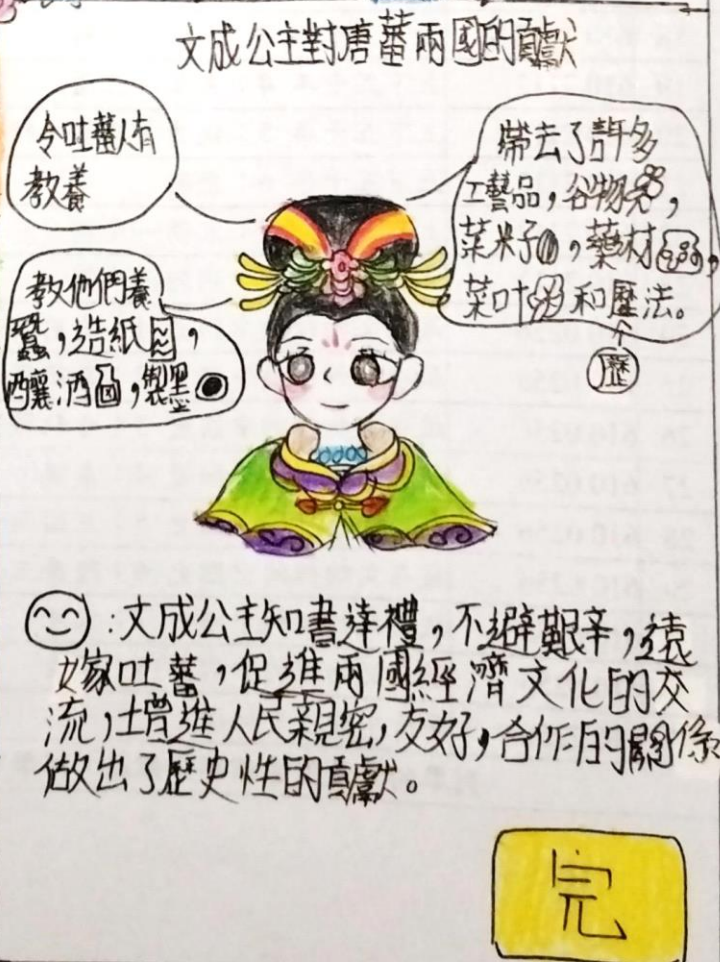 文成公主對唐蕃兩國的貢獻
令吐蕃人有
教養
帶去了許多
工藝品，谷物，
菜米子，藥材，
菜叶和歷法。
歷
教他們養
蠶，造紙，
釀酒，製墨
：文成公主知書達禮，不避艱辛，遠
嫁吐蕃，促進兩國經濟文化的交
流，增進人民親密，友好，合作的關係
做出了歷史性的貢獻。
完